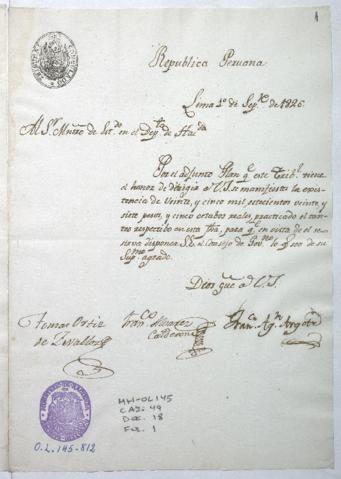 1
Republica Peruana
Lima 1º. de Sep.e de 1826
Al S.or Mntro de Est.do en el Dep.to de Hac.da
Por el adjunto Plan q.e este Trib.l tiene
el honor de dirigir a V.S. se manifiesta la exis-
tencia de veinte, y cinco mil setecientos veinte, y
siete pesos, y cinco octabos reales, practicado el tan-
teo respectivo en esta Tria, para q.e en vista de el re-
suelva disponer S.E. el Consejo de Gov.no lo q.e sea de su
Sup.mo agrado.
Dios gue. a V.S.
Tomas Ortiz
de Zevallos
Fran.co Alvarez
Calderon
Fran.co Ag.n Argote
O.L. 145-812
MH-OL145
CAJ: 49
DOC: 18
FOL: 1